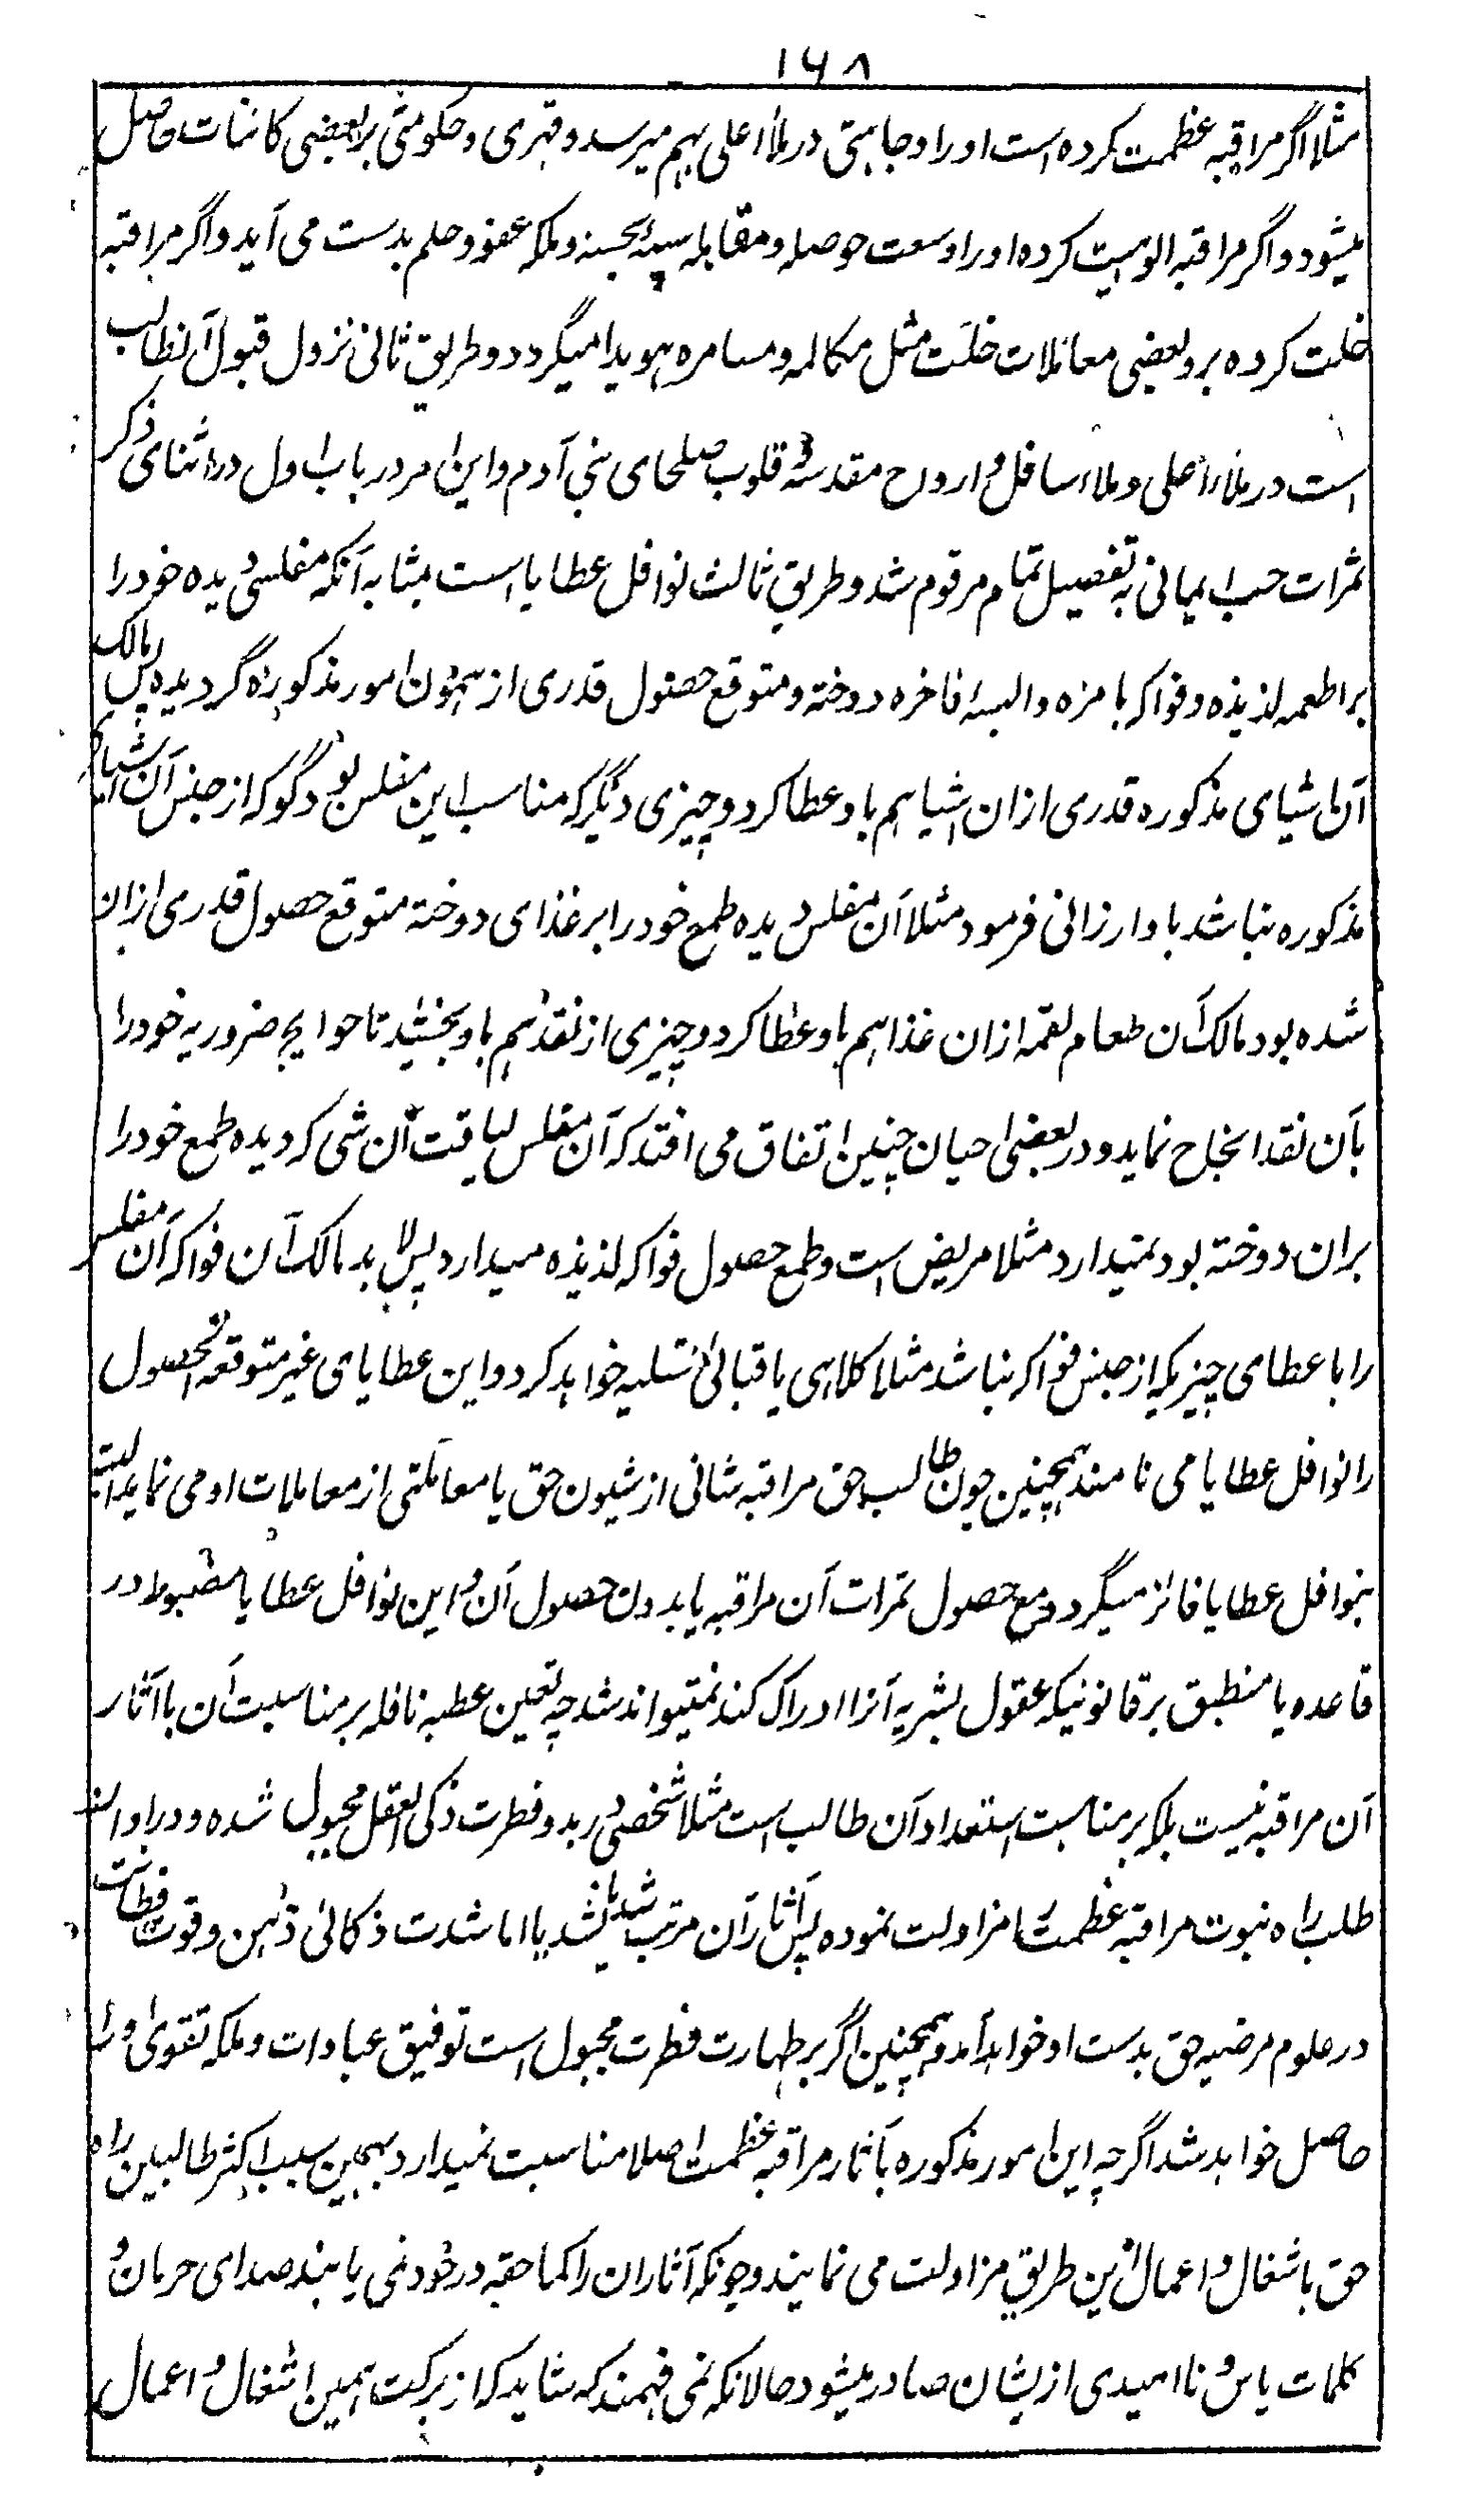 ۱۶۸
مثلا اگر مراقبه عظمت کرده است او را وجاهتی در ملاٴ اعلی بهم میرسد و قهری و حکومتی بر بعضی کائنات حاصل
میشود و اگر مراقبه الوهیت کرده او را وسعت حوصله و مقابله سیئه بحسنه و ملکه عفو و حلم بدست می آید و اگر مراقبه
خلت کرده برو بعضی معاملات خلت مثل مکالمه و مسامره هویدا میگردد و طریق ثانی نزول قبول آنطالب
است در ملاء اعلی و ملاء سافل و ارواح مقدسه و قلوب صلحای بنی آدم و این امر در باب اول در اثنای ذکر
ثمرات حب ایمانی به تفصیل تمام مرقوم شد و طریق ثالث نوافل عطایا است بمثابه آنکه مفلسی دیده خود را
بر اطعمه لذیذه و فواکه بامزه و البسه فاخره دوخته و متوقع حصول قدری از همون امور مذکوره گردیده پس مالک
آن اشیای مذکوره قدری ازان اشیا هم باو عطا کرد و چیزی دیگر که مناسب این مفلس بود گو که از جنس آن اشیای
مذکوره نباشد باو ارزانی فرمود مثلا آن مفلس دیده طمع خود را بر غذای دوخته متوقع حصول قدری ازان
شده بود مالک آن طعام لقمه ازان غذا هم باو عطا کرد و چیزی از نقد هم باو بخشید تا حوایج ضروریه خود را
بآن نقد انجاح نماید و در بعضی احیان چنین اتفاق می افتد که آن مفلس لیاقت آن شی که دیده طمع خود را
بران دوخته بود نمیدارد مثلا مریض است و طمع حصول فواکه لذیذه میدارد پس لابد مالک آن فواکه آن مفلس
را با عطای چیزیکه از جنس فواکه نباشد مثلا کلاهی یا قبائی تسلیه خواهد کرد و این عطایای غیر متوقعه الحصول
را نوافل عطایا می نامند همچنین چون طالب حق مراقبه شانی از شیون حق یا معاملتی از معاملات او می نماید البته
بنوافل عطایا فائز میگردد مع حصول ثمرات آن مراقبه یا بدون حصول آن و این نوافل عطایا مضبوط در
قاعده یا منطبق بر قانونیکه عقول بشریه آنرا ادراک کند نمیتواند شد چه تعین عطیه نافله بر مناسبت آن با آثار
آن مراقبه نیست بلکه بر مناسبت استعداد آن طالب است مثلا شخصی در بدو فطرت ذکی العقل مجبول شده و در اوان
طلب راه نبوت مراقبه عظمت را مزاولت نموده پس آثار آن مرتب شد یا نشد یا اما شدت ذکائی ذهن و قوت فطانت
در علوم مرضیه حق بدست او خواهد آمد و همچنین اگر بر طهارت فطرت مجبول است توفیق عبادات و ملکه تقوی او را
حاصل خواهد شد اگرچه این امور مذکوره بآثار مراقبه عظمت اصلا مناسبت نمیدارد بهمین سبب اکثر طالبین راه
حق باشغال و اعمال این طریق مزاولت می نمایند و چونکه آثار ان را کما حقه در خود نمی یابند صدای حرمان و
کلمات یاس و ناامیدی از ایشان صادر میشود حالانکه نمی فهمند که شاید که از برکت همین اشغال و اعمال